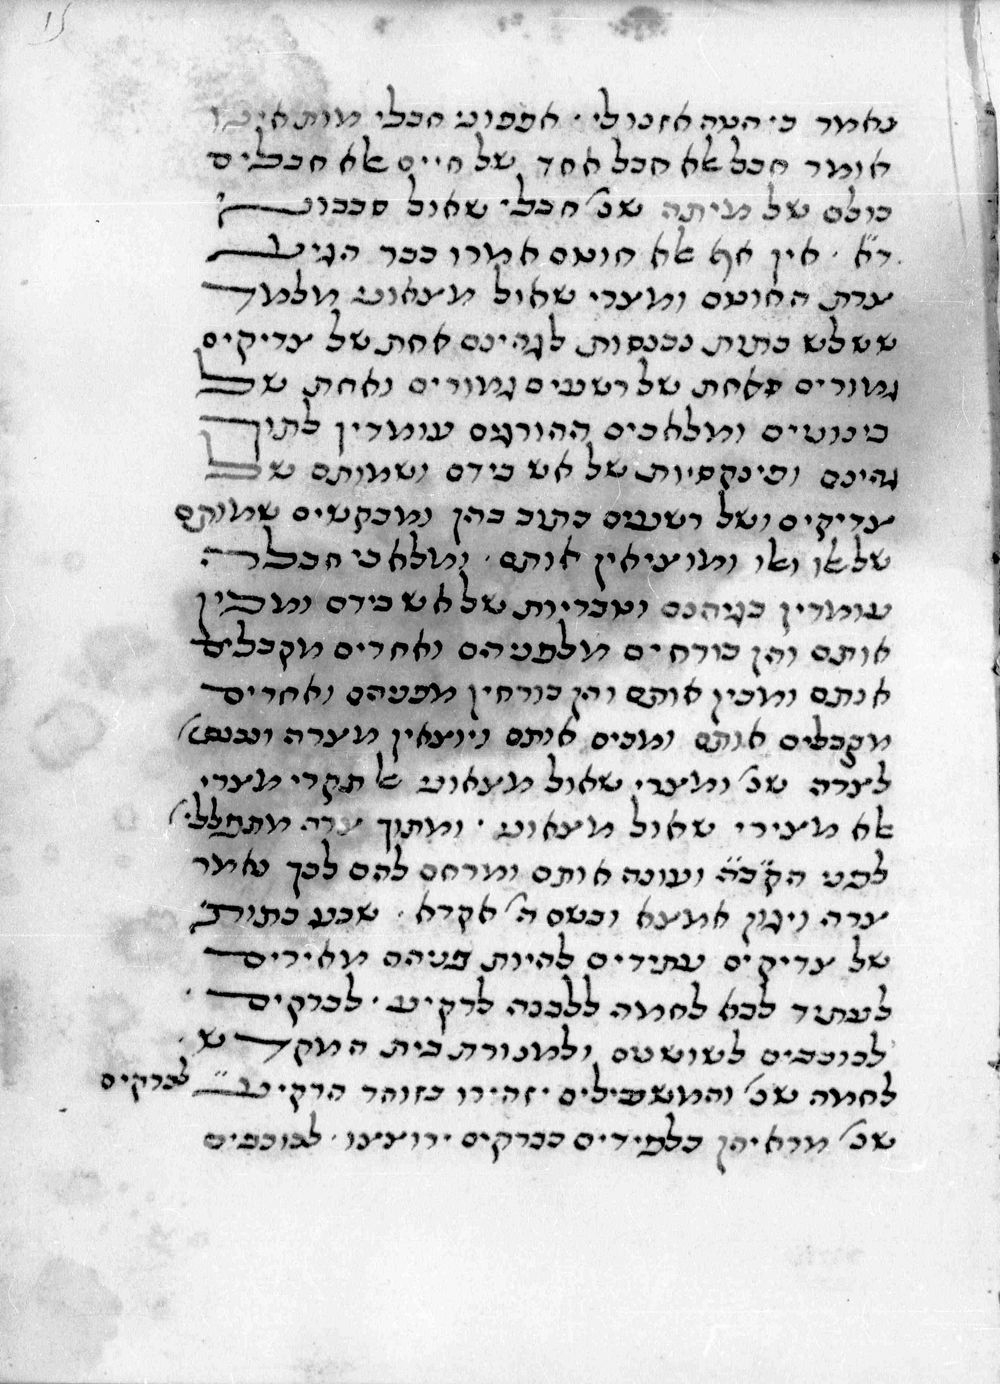 נאמר כי הטה אזנו לי · אפפוני חבלי מות אינו
אומר חבל אלא חבל אחד של חיים אלא חבלים
כולם של מיתה שנ׳ חבלי שאול סבבוני
ד״א · אין אף אלא חוטם אמרו כבר הגיע
צרת החוטם ומצרי שאול מצאוני מלמד
ששלש כתות נכנסות לגהינם אחת של צדיקים
גמורים ואחת של רשעים גמורים ואחת של
בינוניים ומלאכים ההורגים עומדין לתוך
גהינם ופינקסיות של אש בידם ושמותם של
צדיקים ושל רשעים כתוב בהן ומבקשים שמותם
של אלו ואלו ומוציאין אותם · ומלאכי חבלה
עומדין בגיהנם וטבריות של אש בידם ומכין
אותם והן בורחים מלפניהם ואחרים מקבלים
אותם ומכין אותם והן בורחין מפניהם ואחרים
מקבלים אותם ומכים אותם ויוצאין מצרה ונכנסי׳
לצרה שנ׳ ומצרי שאול מצאוני אל תקרי מצרי
אלא מצירי שאול מצאוני · ומתוך צרה מתפללי׳
לפני הק״בה ועונה אותם ומרחם להם לכך נאמר
צרה ויגון אמצא ובשם ה׳ אקרא · שבע כתות
של צדיקים עתידים להיות פניהם מאירים
לעתיד לבא לחמה ללבנה לרקיע · לברקים
לכוכבים לשושנים ולמנורת בית המקדש ·
לחמה שנ׳ והמשכילים יזהירו כזוהר הרקיע לברקים
שנ׳ מראיהן כלפידים כברקים ירוצצו · לכוכבים